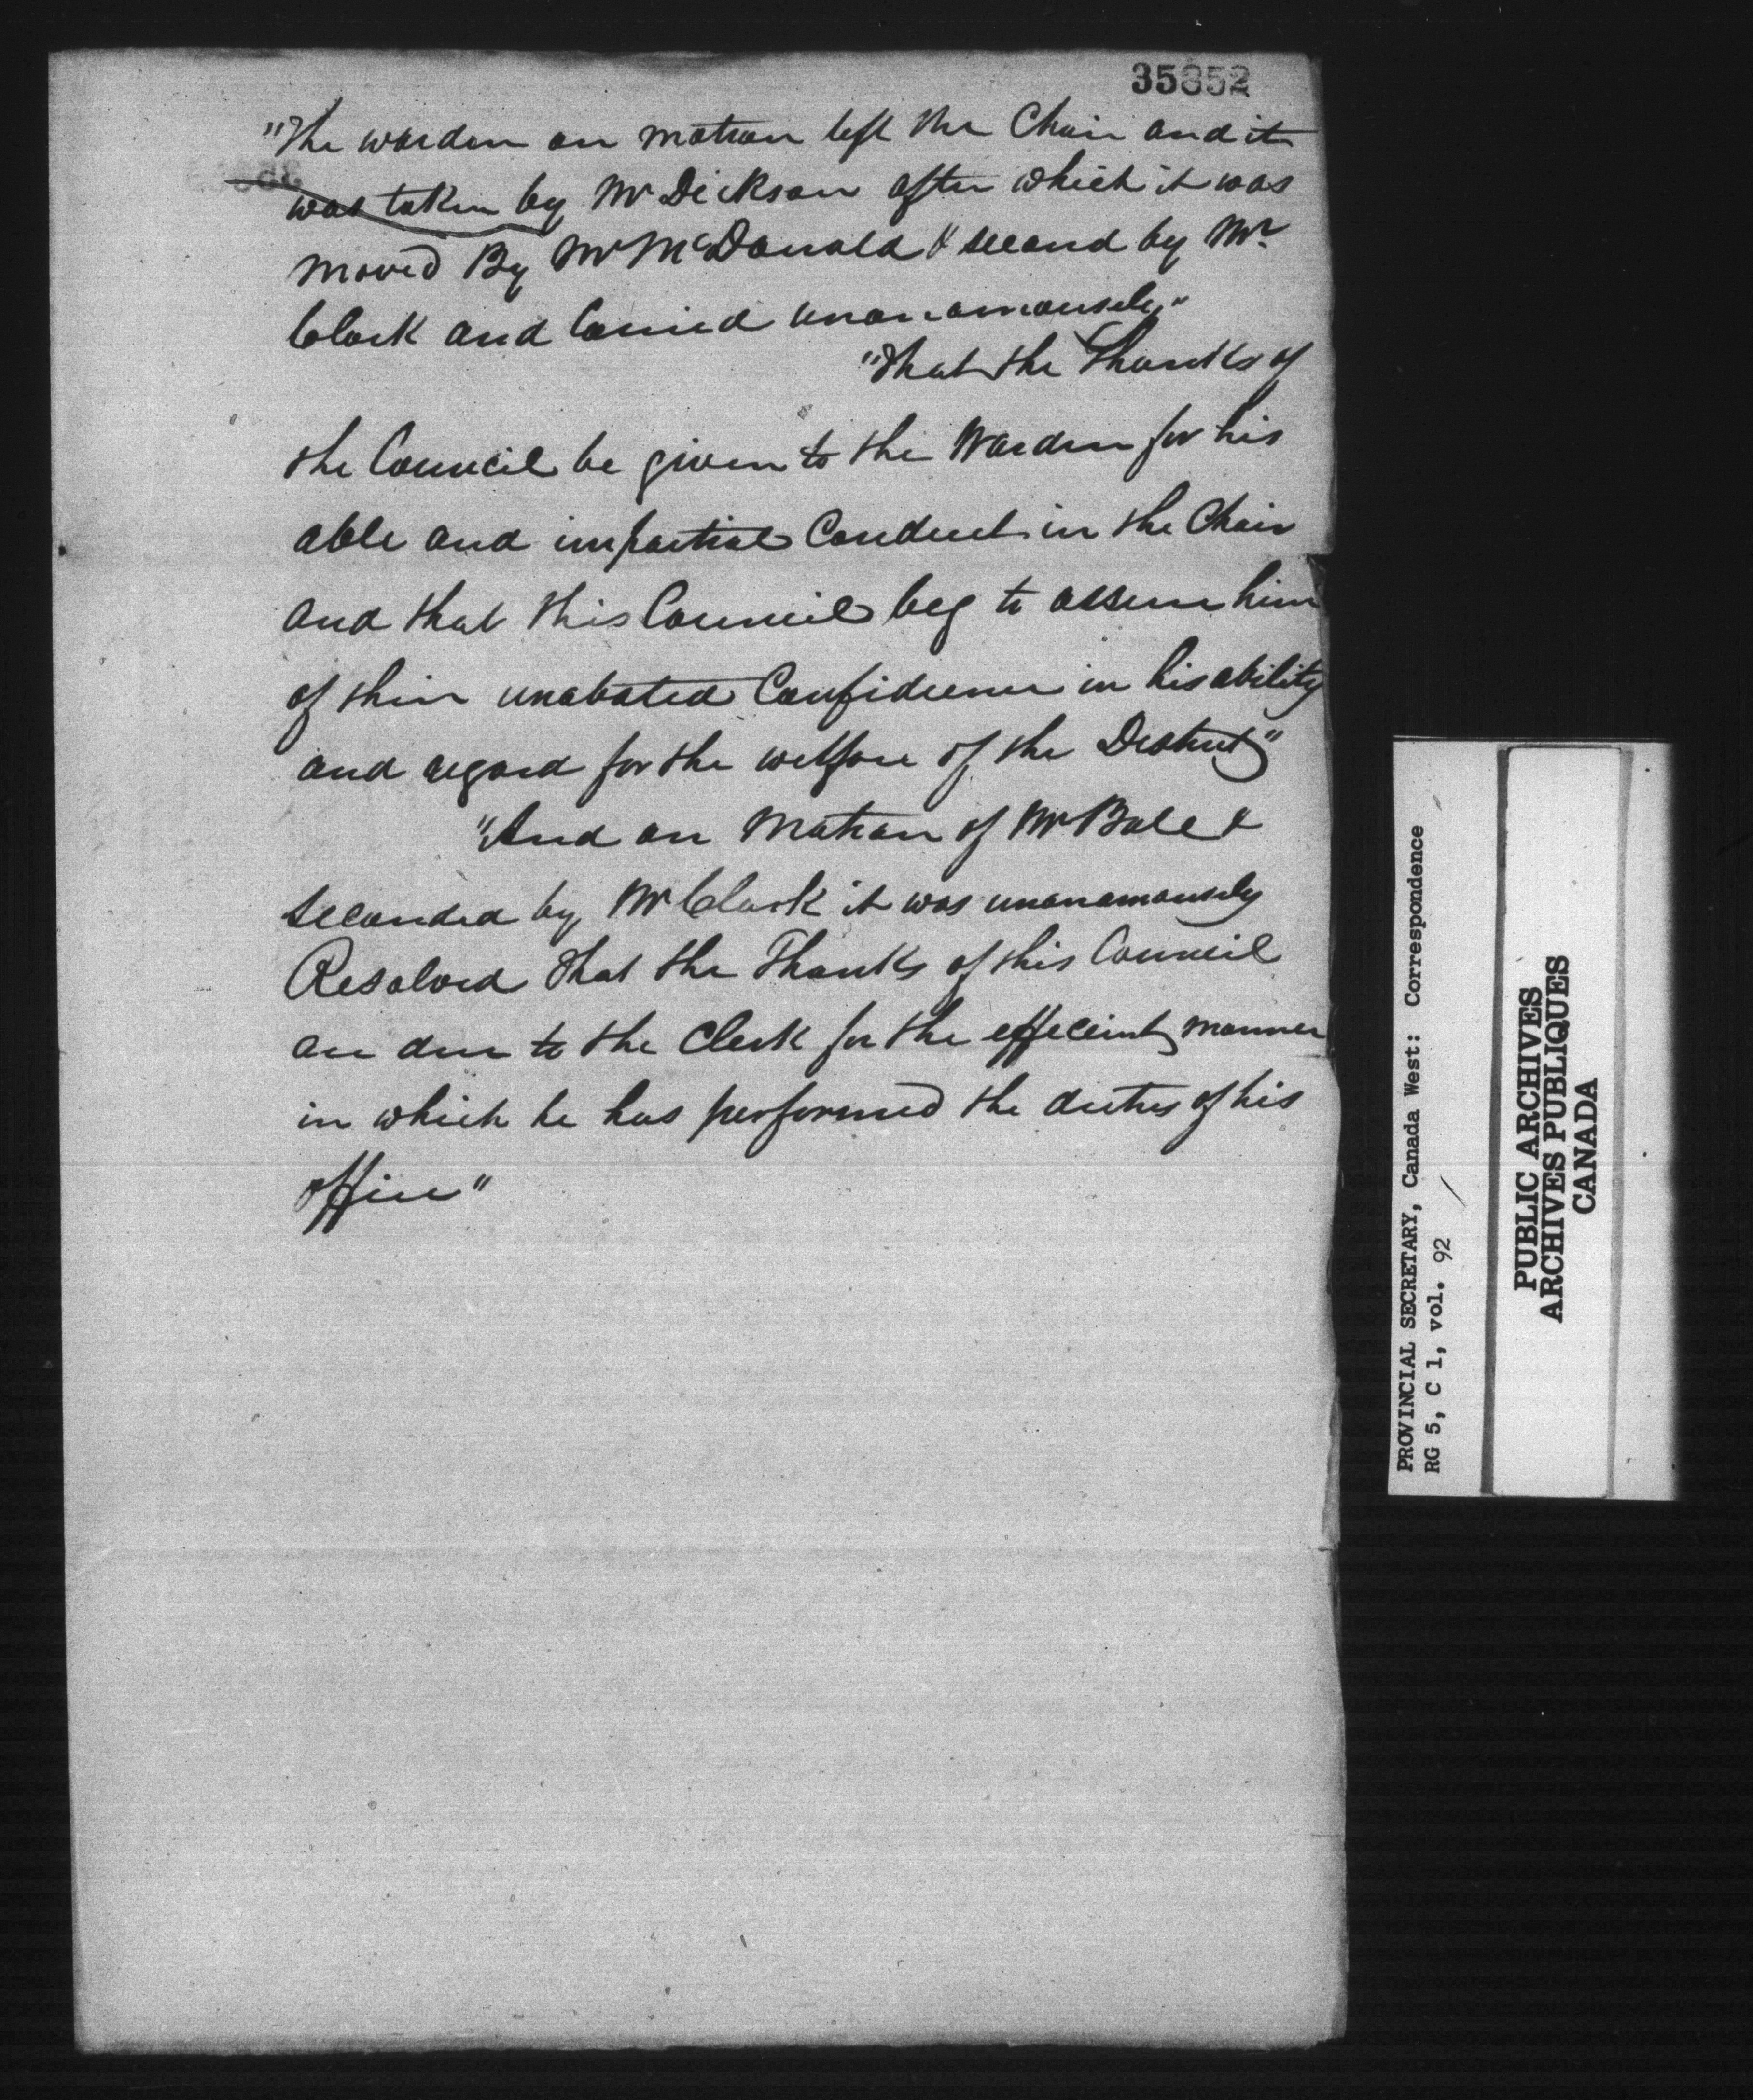 35852
"The warden on motion left the Chair and it
was taken by Mr Dickson after which it was
moved By Mr McDonald & second by Mr
Clark and Carried unanamously"
"That the Thanks of
the Council be given to the Warden for his
able and impartial Conduct in the Chair
and that this Council beg to assure him
of their unabated Confidence in his ability
and regard for the welfare of the District"
"And on Motion of Mr Bale &
seconded by Mr Clark it was unanamously
Resolved That the Thanks of this Council
are due to the Clerk for the effecient manner
in which he has performed the duties of his
office"
PROVINCIAL SECRETARY, Canada West: Correspondence
RG 5, C 1, vol. 92
PUBLIC ARCHIVES
ARCHIVES PUBLIQUES
CANADA